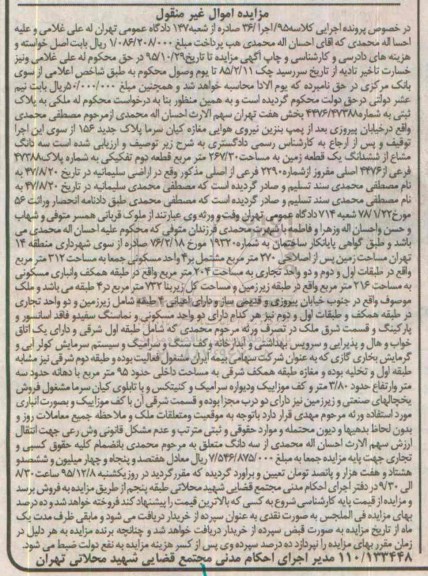 مزایده اموال غیر منقول
در خصوص پرونده اجرایی کلاسه ۹۵/اجرا/۳۶ صادره از شعبه ۱۳۷ دادگاه عمومی تهران له علی غلامی و علیه
احسا اله محمدی که آقای احسان اله محمدی هب پرداخت مبلغ ۱/۰۸۶/۲۰۸/۰۰۰ ریال بابت اصل خواسته و
هزینه های دادرسی و کارشناسی و چاپ آگهی مزایده تا تاریخ ۹۵/۱۰/۲۹ در حق محکوم له علی غلامی ونیز
خسارت تاخیر تادیه از تاریخ سررسید چک ۸۵/۲/۱۱ تا یوم وصول محکوم به طبق شاخص اعلامی از سوی
بانک مرکزی در حق نامبرده که یوم الادا محاسبه خواهد شد و همچنین مبلغ ۵۰/۰۰۰/۰۰۰ ریال بابت نیم
عشر دولتی درحق دولت محکوم گردیده است و به همین منظور بنا به درخواست محکوم له ملکی به پلاک
ثبتی به شماره ۴۴۷۶/۴۷۳۸۸ بخش هفت تهران سهم الارث احسان اله محمدی ازمرحوم مصطفی محمدی
واقع درخیابان پیروزی بعد از پمپ بنزین نیروی هوایی مغازه کیان سرما پلاک جدید ۱۵۶ از سوی این اجرا
توقیف و پس از ارجاع به کارشناس رسمی دادگستری به شرح زیر توصیف و ارزیابی شده است سه دانگ
مشاع از ششدانگ یک قطعه زمین به مساحت ۲۶۷/۳۰ متر مربع قطعه دوم تفکیکی به شماره پلاک ۴۷۳۸۸
فرعی از ۴۴۷۶ اصلی مفروز ازشماره ۲۲۹۰ فرعی از اصلی مذکور واقع در اراضی سلیمانیه در تاریخ ۴۷/۸/۲۰ به
نام مصطفی محمدی سند تسلیم و صادر گردیده است که مصطفی محمدی سلیمانیه در تاریخ ۴۷/۸/۲۰ به
نام مصطفی محمدی سند تسلیم و صادر گردیده است که مصطفی محمدی طبق دادنامه انحصار وراثت ۵۶
مورخ ۷۸/۱/۲۲ شعبه ۷۱۴ دادگاه عمومی تهران وفت و ورثه وی عبارتند از ملوک قربانی همسر متوفی و شهاب
و حسن واحسان اله وزهرا و فاطمه با شهرت محمدی فرزندان متوفی که محکوم علیه احسان اله محمدی می
باشد و طبق گواهی پایانکار ساختمان به شماره ۱۹۲۲۰ مورخ ۷۶/۲/۱۸ صادره از سوی شهرداری منطقه ۱۴
تهران مساحت زمین پس از اصلاحی ۲۷۰ متر مربع مشتمل بر ۴ واحد مسکونی جمعا به مساحت ۳۱۲ متر مربع
واقع در طبقات اول و دوم و دو واحد تجاری به مساحت ۲۰۴ متر مربع واقع در طبقه همکف وانباری مسکونی
به مساحت ۲۱۶ متر مربع واقع در طبقه زیرزمین و مساحت کل زیربنا ۷۳۲ متر مربع در ۴ طبقه می باشد و ملک
موصوف واقع در جنوب خیابان پیروزی و قدیمی ساز و دارای اعیانی ۴ طبقه شامل زیرزمین و دو واحد تجاری
در طبقه همکف و طبقات اول و دوم نیز هر کدام دارای دو واحد مسکونی و نماسنگ سفیدو فاقد اسانسور و
پارکینگ و قسمت شرق ملک در تصرف ورثه مرحوم محمدی که شامل طبقه اول شرقی و دارای یک اتاق
خواب و هال و پذیرایی و سرویس بهداشتی و آشپزخانه و کف سنگ و سرامیک و سیستم سرمایش کولر آبی و
گرمایش بخاری گازی که به عنوان شرکت سهامی بیمه ایران مشغول فعالیت بوده و طبقه دوم شرقی نیز مشابه
طبقه اول و تخلیه بوده و مغازه طبقه همکف شرقی به مساحت داخلی حدود ۹۵ متر مربع با دهانه حدود سه
متر وارتفاع حدود ۳/۸۰ متر و کف موزاییک ودیواره سرامیک و کنیتکس و با تابلوی کیان سرما مشغول فروش
یخچالهای صنعتی و زیرزمین نیز دارای دو درب مجزا بوده و قسمت شرقی آن با کف موزاییک و بصورت انباری
مورد استفاده ورثه مرحوم مهدی قرار دارد باتوجه به موقعیت ومتعلقات ملک و ملاحظه جمیع معاملات روز و
بدون لحاظ بدهیها و دیون محتمله و موارد حقوقی و ثبتی مترتب و عدم مشکل قانونی وش رعی جهت انتقال
ارزش سهم الارث احسان اله محمدی از سه دانگ متعلق به مرحوم محمدی بانضمام کلیه حقوق کسبی و
تجاری جهت پایه مزایده جمعا به مبلغ ۷/۵۴۶/۸۷۵/۰۰۰ ریال معادل هفتصد و پنجاه و چهار میلیون و ششصد و
هشتاد و هفت هزار و پانصد تومان تعیین و برآورد گردیده که مقرر گردید در روز یکشنبه ۹۵/۱۲/۸ ساعت ۸/۳۰
الی ۹/۳۰ در دفتر اجرای احکام مدنی مجتمع قضایی شهید محلاتی طبقه پنجم از طریق مزایده به فروش برسد
و مزایده از قیمت پایه کارشناسی شروع به کسی که بالاترین قیمت را پیشنهاد کند فروخته خواهد شد و ده درصد
بهای مزایده فی المجلس به صورت نقدی به عنوان سپرده از خریدار دریافت می شود و مابقی ظرف مدت یک
ماه از تاریخ مزایده به صورت قبض سپرده از خریدار دریافت خواهد شد و چنانچه برنده مزایده به هر دلیل در
زمان مقرر بهای مزایده را نپردازد ده درصد سپرده وی پس از کسر هزینه مزایده به نفع دولت ضبط می شود.
۱۱۰/۱۳۳۴۴۸ مدیر اجرای احکام مدنی مجتمع قضایی شهید محلاتی تهران